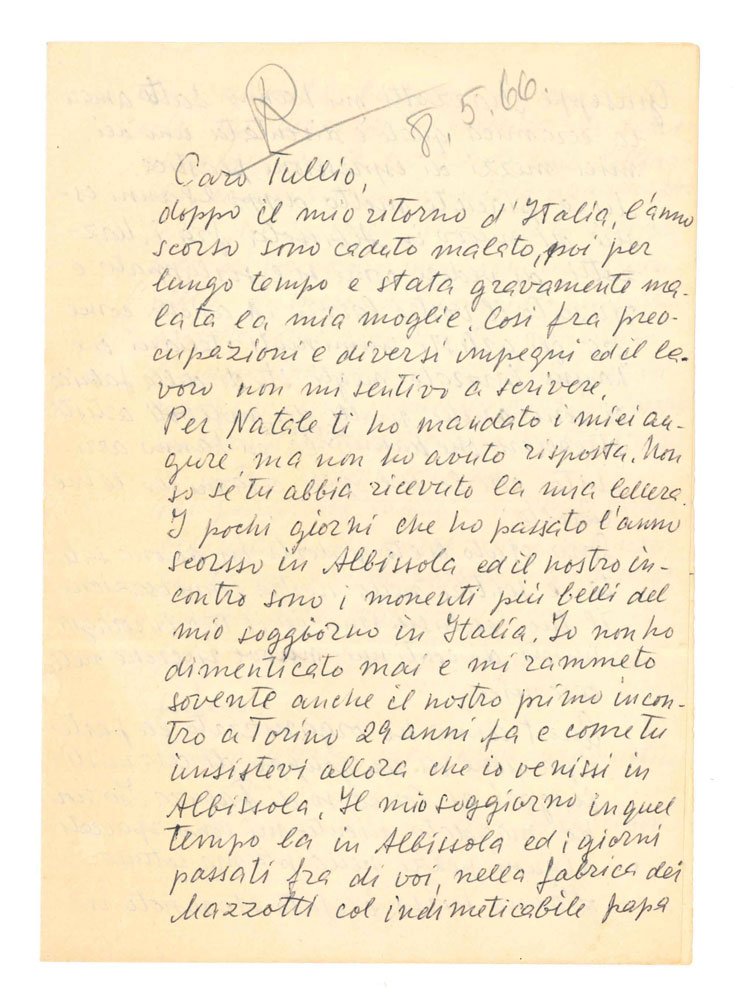 R
8.5.66.
Caro Tullio,
doppo il mio ritorno d'Italia, l'anno
scorso sono caduto malato, poi per
lungo tempo e stata gravamente ma-
lata la mia moglie. Cosi fra preo-
cupazioni e diversi impegni ed il la-
voro non mi sentivo a scrivere.
Per Natale ti ho mandato i miei au-
guri, ma non ho avuto risposta. Non
so se tu abbia ricevuto la mia lettera.
I pochi giorni che ho passato l'anno
scorsso in Albissola ed il nostro in-
contro sono i momenti più belli del
mio soggiorno in Italia. Io non ho
dimenticato mai e mi rammeto
sovente anche il nostro primo incon-
tro a Torino 29 anni fa e come tu
insistevi allora che io venissi in
Albissola. Il mio soggiorno in quel
tempo la in Albissola ed i giorni
passati fra di voi, nella fabrica dei
Mazzotti col indimeticabile papa